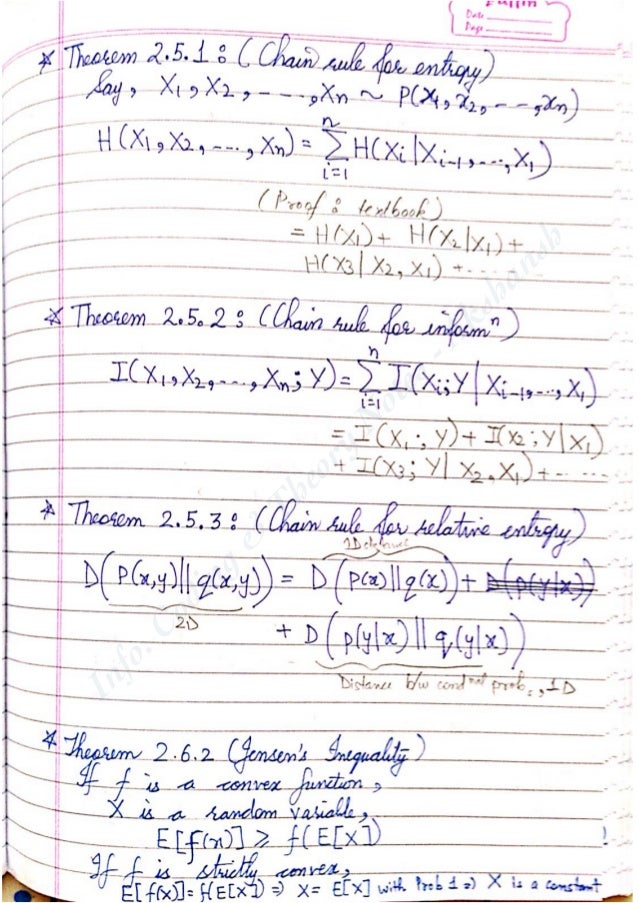 Date
Page
* Theorem 2.5.1 : (Chain rule for entropy)
Say, X₁, X₂, ----, Xn ~ P(x₁, x₂, --, xn)
H(X₁, X₂, ----, Xn) = Σ_{i=1}^{n} H(Xi | Xi-1, ..., X₁)
(Proof : textbook)
= H(X₁) + H(X₂|X₁) +
H(X₃| X₂, X₁) + ....
* Theorem 2.5.2 : (Chain rule for informⁿ)
I(X₁, X₂, ..., Xn ; Y) = Σ_{i=1}^{n} I(Xi ; Y | Xi-1, ..., X₁)
= I(X₁ ; Y) + I(X₂ ; Y|X₁)
+ I(X₃ ; Y| X₂, X₁) + .. ...
* Theorem 2.5.3 : (Chain rule for relative entropy)
1D distance
D(P(x,y)||q(x,y)) = D(P(x)||q(x)) + D(p(y|x))
2D
+ D(p(y|x) || q(y|x))
Distance b/w condⁿᵃˡ prob., 1D
* Theorem 2.6.2 (Jensen's Inequality)
If f is a convex function,
X is a random variable,
E[f(x)] ≥ f(E[X])
If f is strictly convex,
E[f(x)] = f(E[X]) ⇒ X = E[X] with Prob 1 ⇒ X is a constant